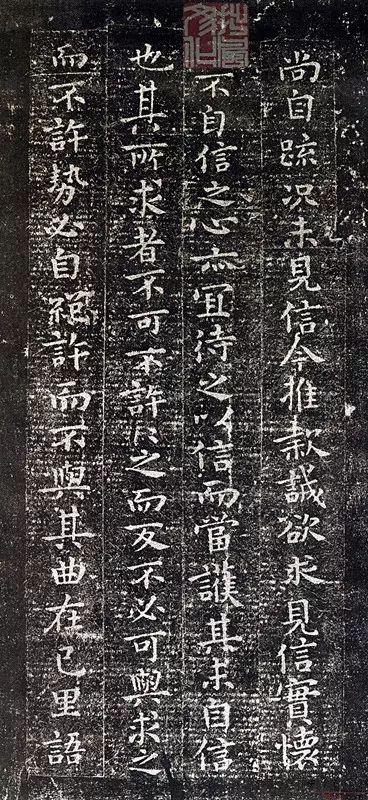 尚自踈况未見信今推款誠欲求見信實懷
不自信之心亦宜待之以信而當護其未自信
也其所求者不可不許〻之而反不必可與求之
而不許勢必自絕許而不與其曲在已里語